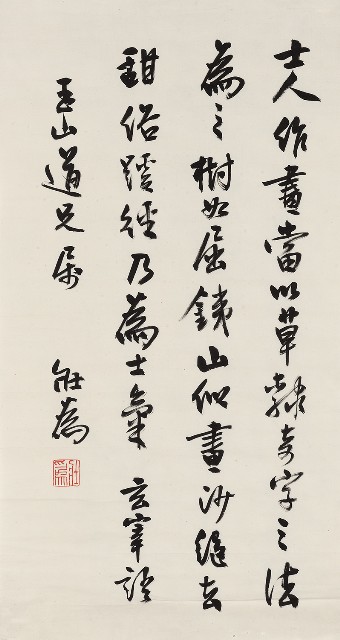 士人作畫當以草隸奇字之法
為之樹如屈銕山似畫沙絕去
甜俗蹊徑乃為士氣 玄宰語
玉山道兄屬 壯為
壯為